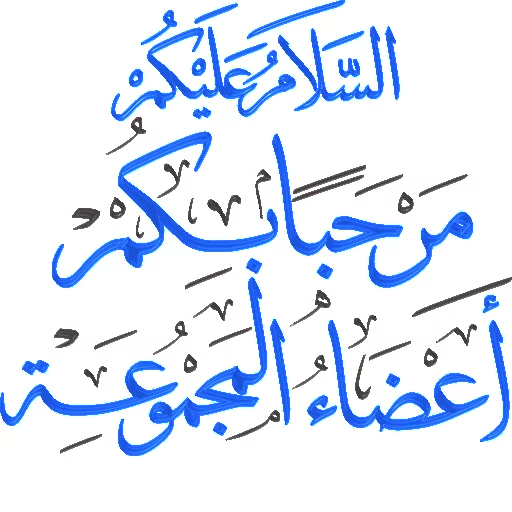 السَّلَامُ عَلَيْكُمْ
مَرْحَبًا بِكُمْ
أَعْضَاءُ الْمَجْمُوعَةِ